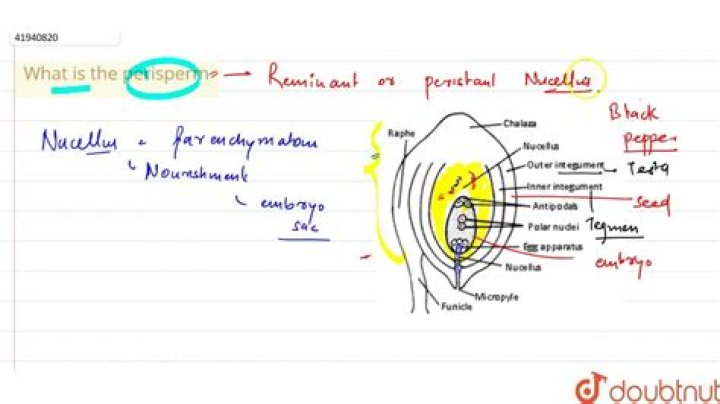 41940820
What is the perisperm → Reminant or peristant Nucellus.
Nucellus = Parenchymatom
Nourishment
embryo
sac
Black
pepper
Chalaza
Raphe
Nucellus
Outer integument → Testa
Inner integument
seed
Antipodals
Polar nuclei Tegmen
Egg apparatus
embryo
Nucellus
Micropyle
Funicle
doubtnut